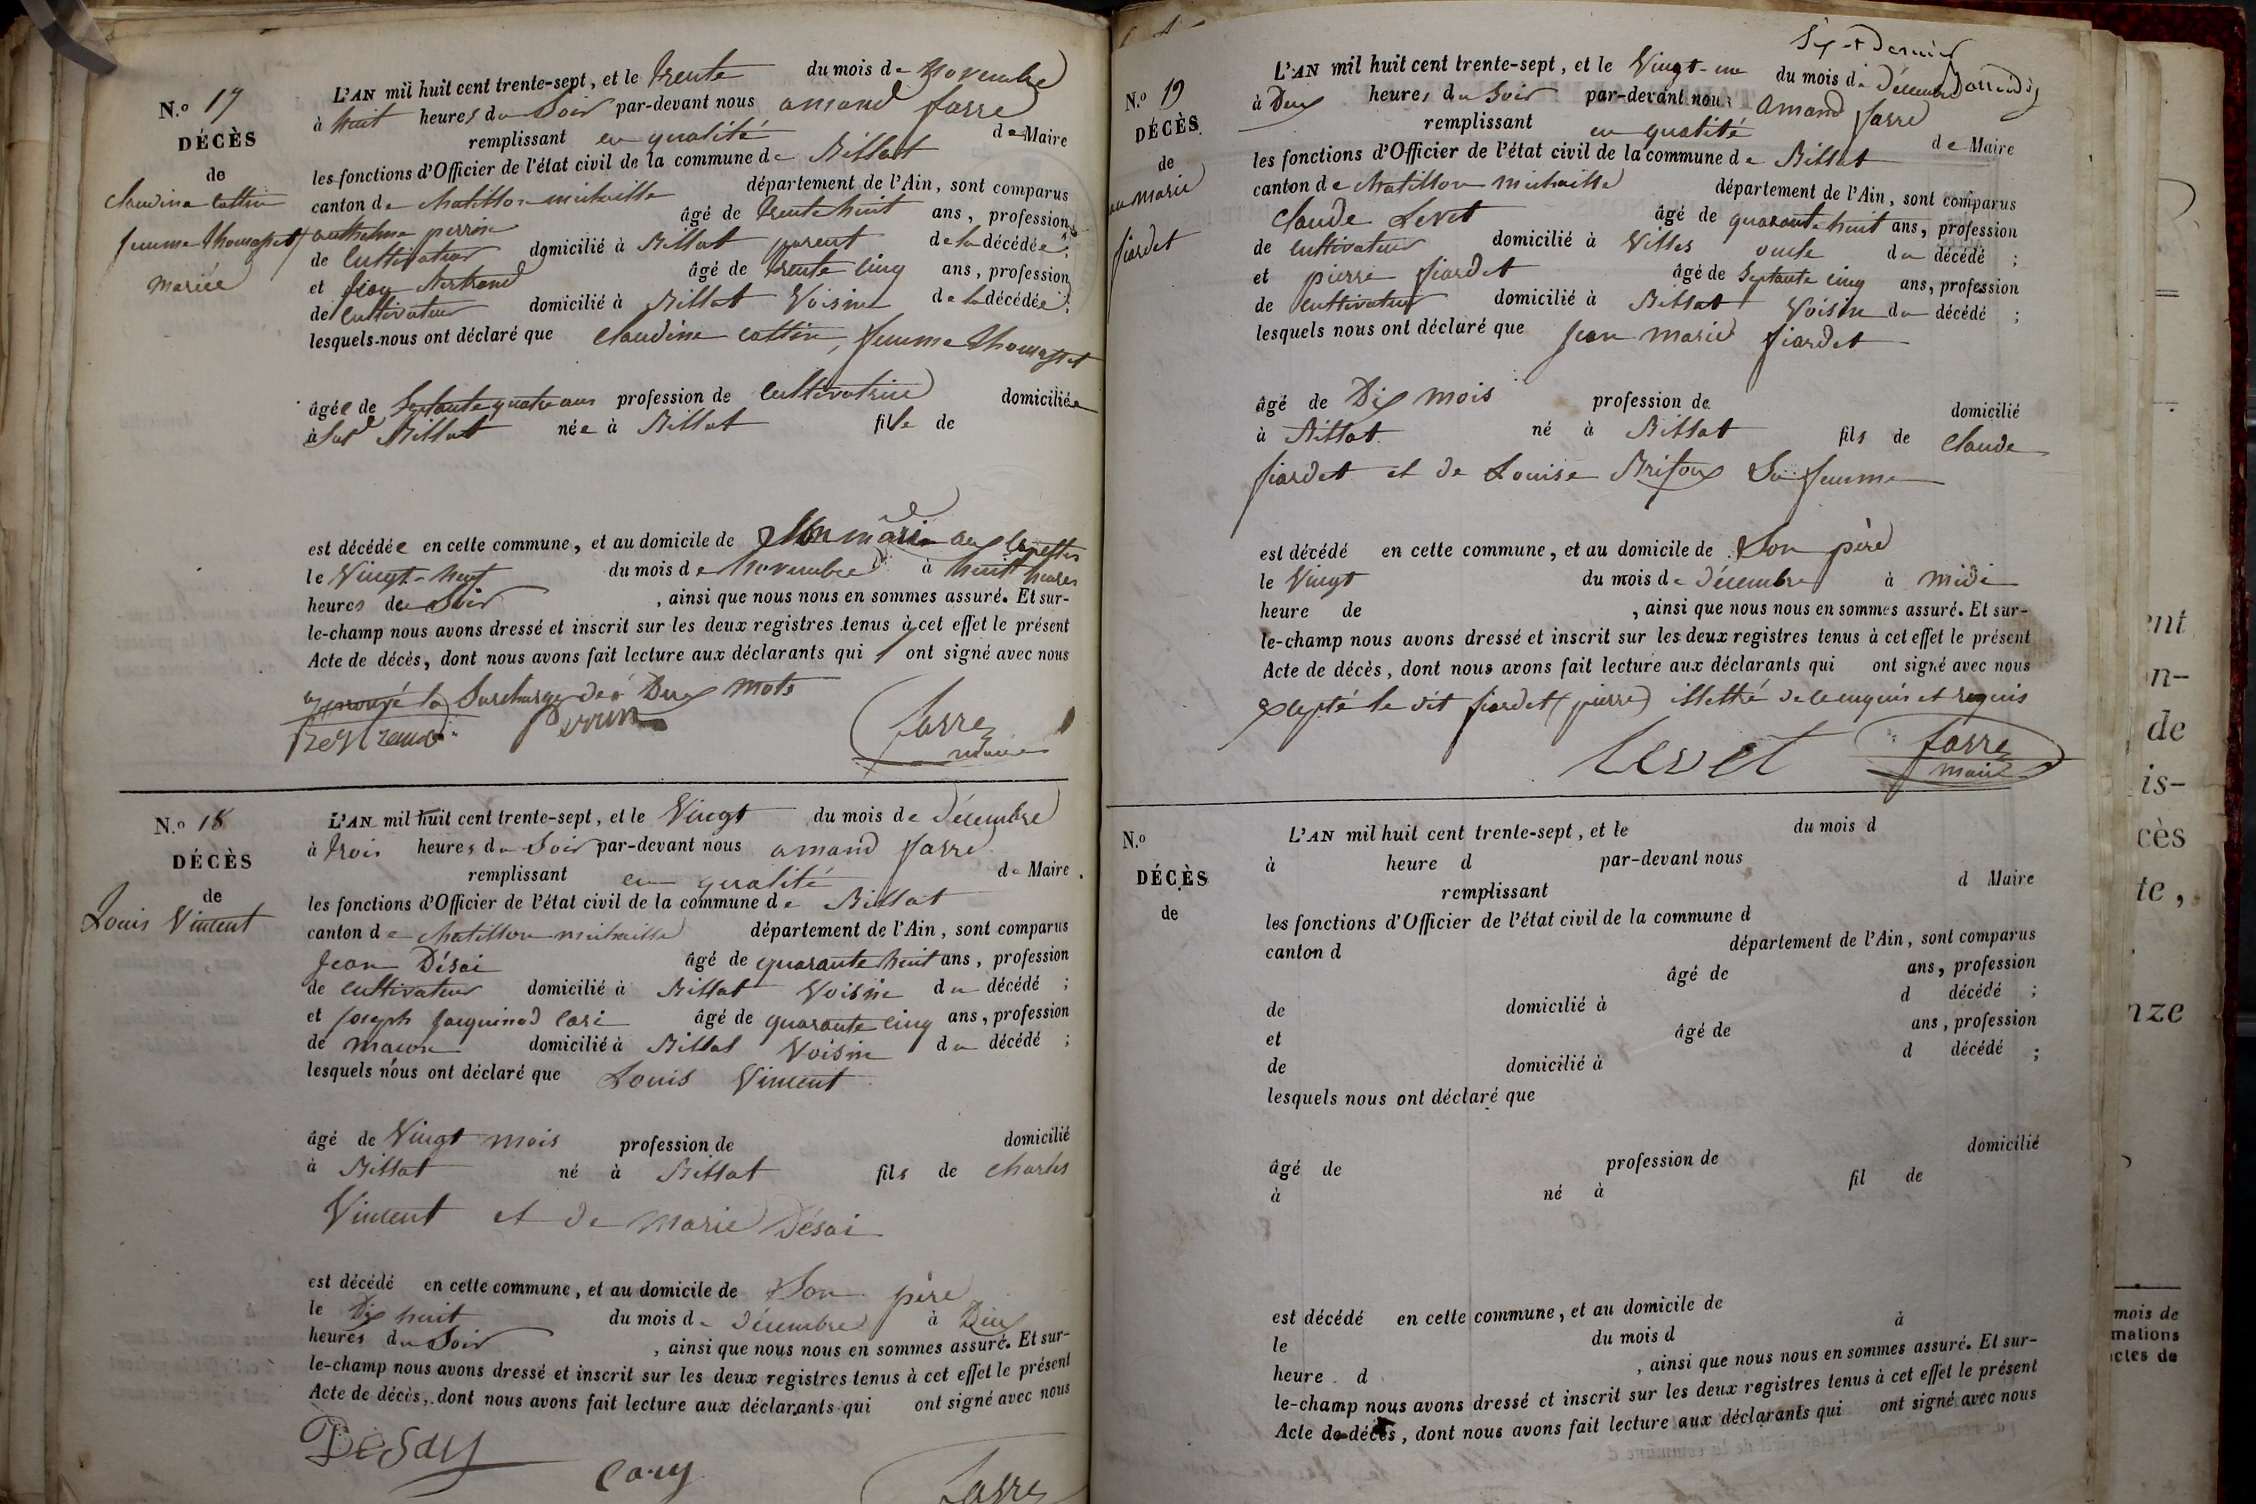 N.o 17
DÉCÈS
de
Claudine Cottin
femme Thomasset
mariée
L'AN mil huit cent trente-sept, et le trente du mois de Novembre
à huit heures du Soir par-devant nous amand favre
remplissant en qualité de Maire
les fonctions d'Officier de l'état civil de la commune de Billiat
canton de chatillon michaille département de l'Ain, sont comparus
anthelme perrin âgé de trente huit ans, profession
de Cultivateur domicilié à Billiat parent de la décédée;
et jean Bertrand âgé de trente cinq ans, profession
de Cultivateur domicilié à Billiat Voisin de la décédée;
lesquels nous ont déclaré que Claudine cottin, femme thomasset
âgée de Septante quatre ans profession de Cultivatrice domiciliée
à Billiat née à Billiat fille de
est décédée en cette commune, et au domicile de Son mari
le Vingt-neuf du mois de Novembre à huit heures
heures du Soir, ainsi que nous nous en sommes assuré. Et sur-
le-champ nous avons dressé et inscrit sur les deux registres tenus à cet effet le présent
Acte de décès, dont nous avons fait lecture aux déclarants qui y ont signé avec nous
approuvé la Surcharge de Deux mots
Bertrand Perrin favre
maire
N.o 18
DÉCÈS
de
Louis Vincent
L'AN mil huit cent trente-sept, et le Vingt du mois de Décembre
à trois heures du Soir par-devant nous amand favre
remplissant en qualité de Maire
les fonctions d'Officier de l'état civil de la commune de Billiat
canton de chatillon michaille département de l'Ain, sont comparus
Jean Désai âgé de quarante huit ans, profession
de cultivateur domicilié à Billiat Voisin du décédé;
et joseph jacquinod Cari âgé de quarante cinq ans, profession
de maçon domicilié à Billiat Voisin du décédé;
lesquels nous ont déclaré que Louis Vincent
âgé de Vingt mois profession de domicilié
à Billiat né à Billiat fils de Charles
Vincent et de Marie Désai
est décédé en cette commune, et au domicile de Son père
le Dix huit du mois de Décembre à Deux
heures du Soir, ainsi que nous nous en sommes assuré. Et sur-
le-champ nous avons dressé et inscrit sur les deux registres tenus à cet effet le présent
Acte de décès, dont nous avons fait lecture aux déclarants qui ont signé avec nous
Desay
cary favre
N.o 19
DÉCÈS
de
marie
fiardet
L'AN mil huit cent trente-sept, et le Vingt-un du mois de Décembre
à Deux heures du Soir par-devant nous Amand favre
remplissant en qualité de Maire
les fonctions d'Officier de l'état civil de la commune de Billiat
canton de chatillon michaille département de l'Ain, sont comparus
Claude Levet âgé de quarante huit ans, profession
de cultivateur domicilié à Villes oncle du décédé;
et pierre fiardet âgé de Septante cinq ans, profession
de cultivateur domicilié à Billiat Voisin du décédé;
lesquels nous ont déclaré que Jean marie fiardet
âgé de Dix mois profession de domicilié
à Billiat né à Billiat fils de Claude
fiardet et de Louise Brifoux Sa femme
est décédé en cette commune, et au domicile de Son père
le Vingt du mois de Décembre à midi
heure de, ainsi que nous nous en sommes assuré. Et sur-
le-champ nous avons dressé et inscrit sur les deux registres tenus à cet effet le présent
Acte de décès, dont nous avons fait lecture aux déclarants qui ont signé avec nous
Excepté le dit fiardet (pierre) illettré de ce enquis et requis
Levet favre
maire
N.o
DÉCÈS
de
L'AN mil huit cent trente-sept, et le du mois d
à heure d par-devant nous
remplissant d Maire
les fonctions d'Officier de l'état civil de la commune d
canton d département de l'Ain, sont comparus
âgé de ans, profession
de domicilié à d décédé;
et âgé de ans, profession
de domicilié à d décédé;
lesquels nous ont déclaré que
âgé de profession de domicilié
à né à fil de
est décédé en cette commune, et au domicile de
le du mois d à
heure d, ainsi que nous nous en sommes assuré. Et sur-
le-champ nous avons dressé et inscrit sur les deux registres tenus à cet effet le présent
Acte de décès, dont nous avons fait lecture aux déclarants qui ont signé avec nous
ent
n-
de
is-
cès
te,
nze
mois de
mations
actes de